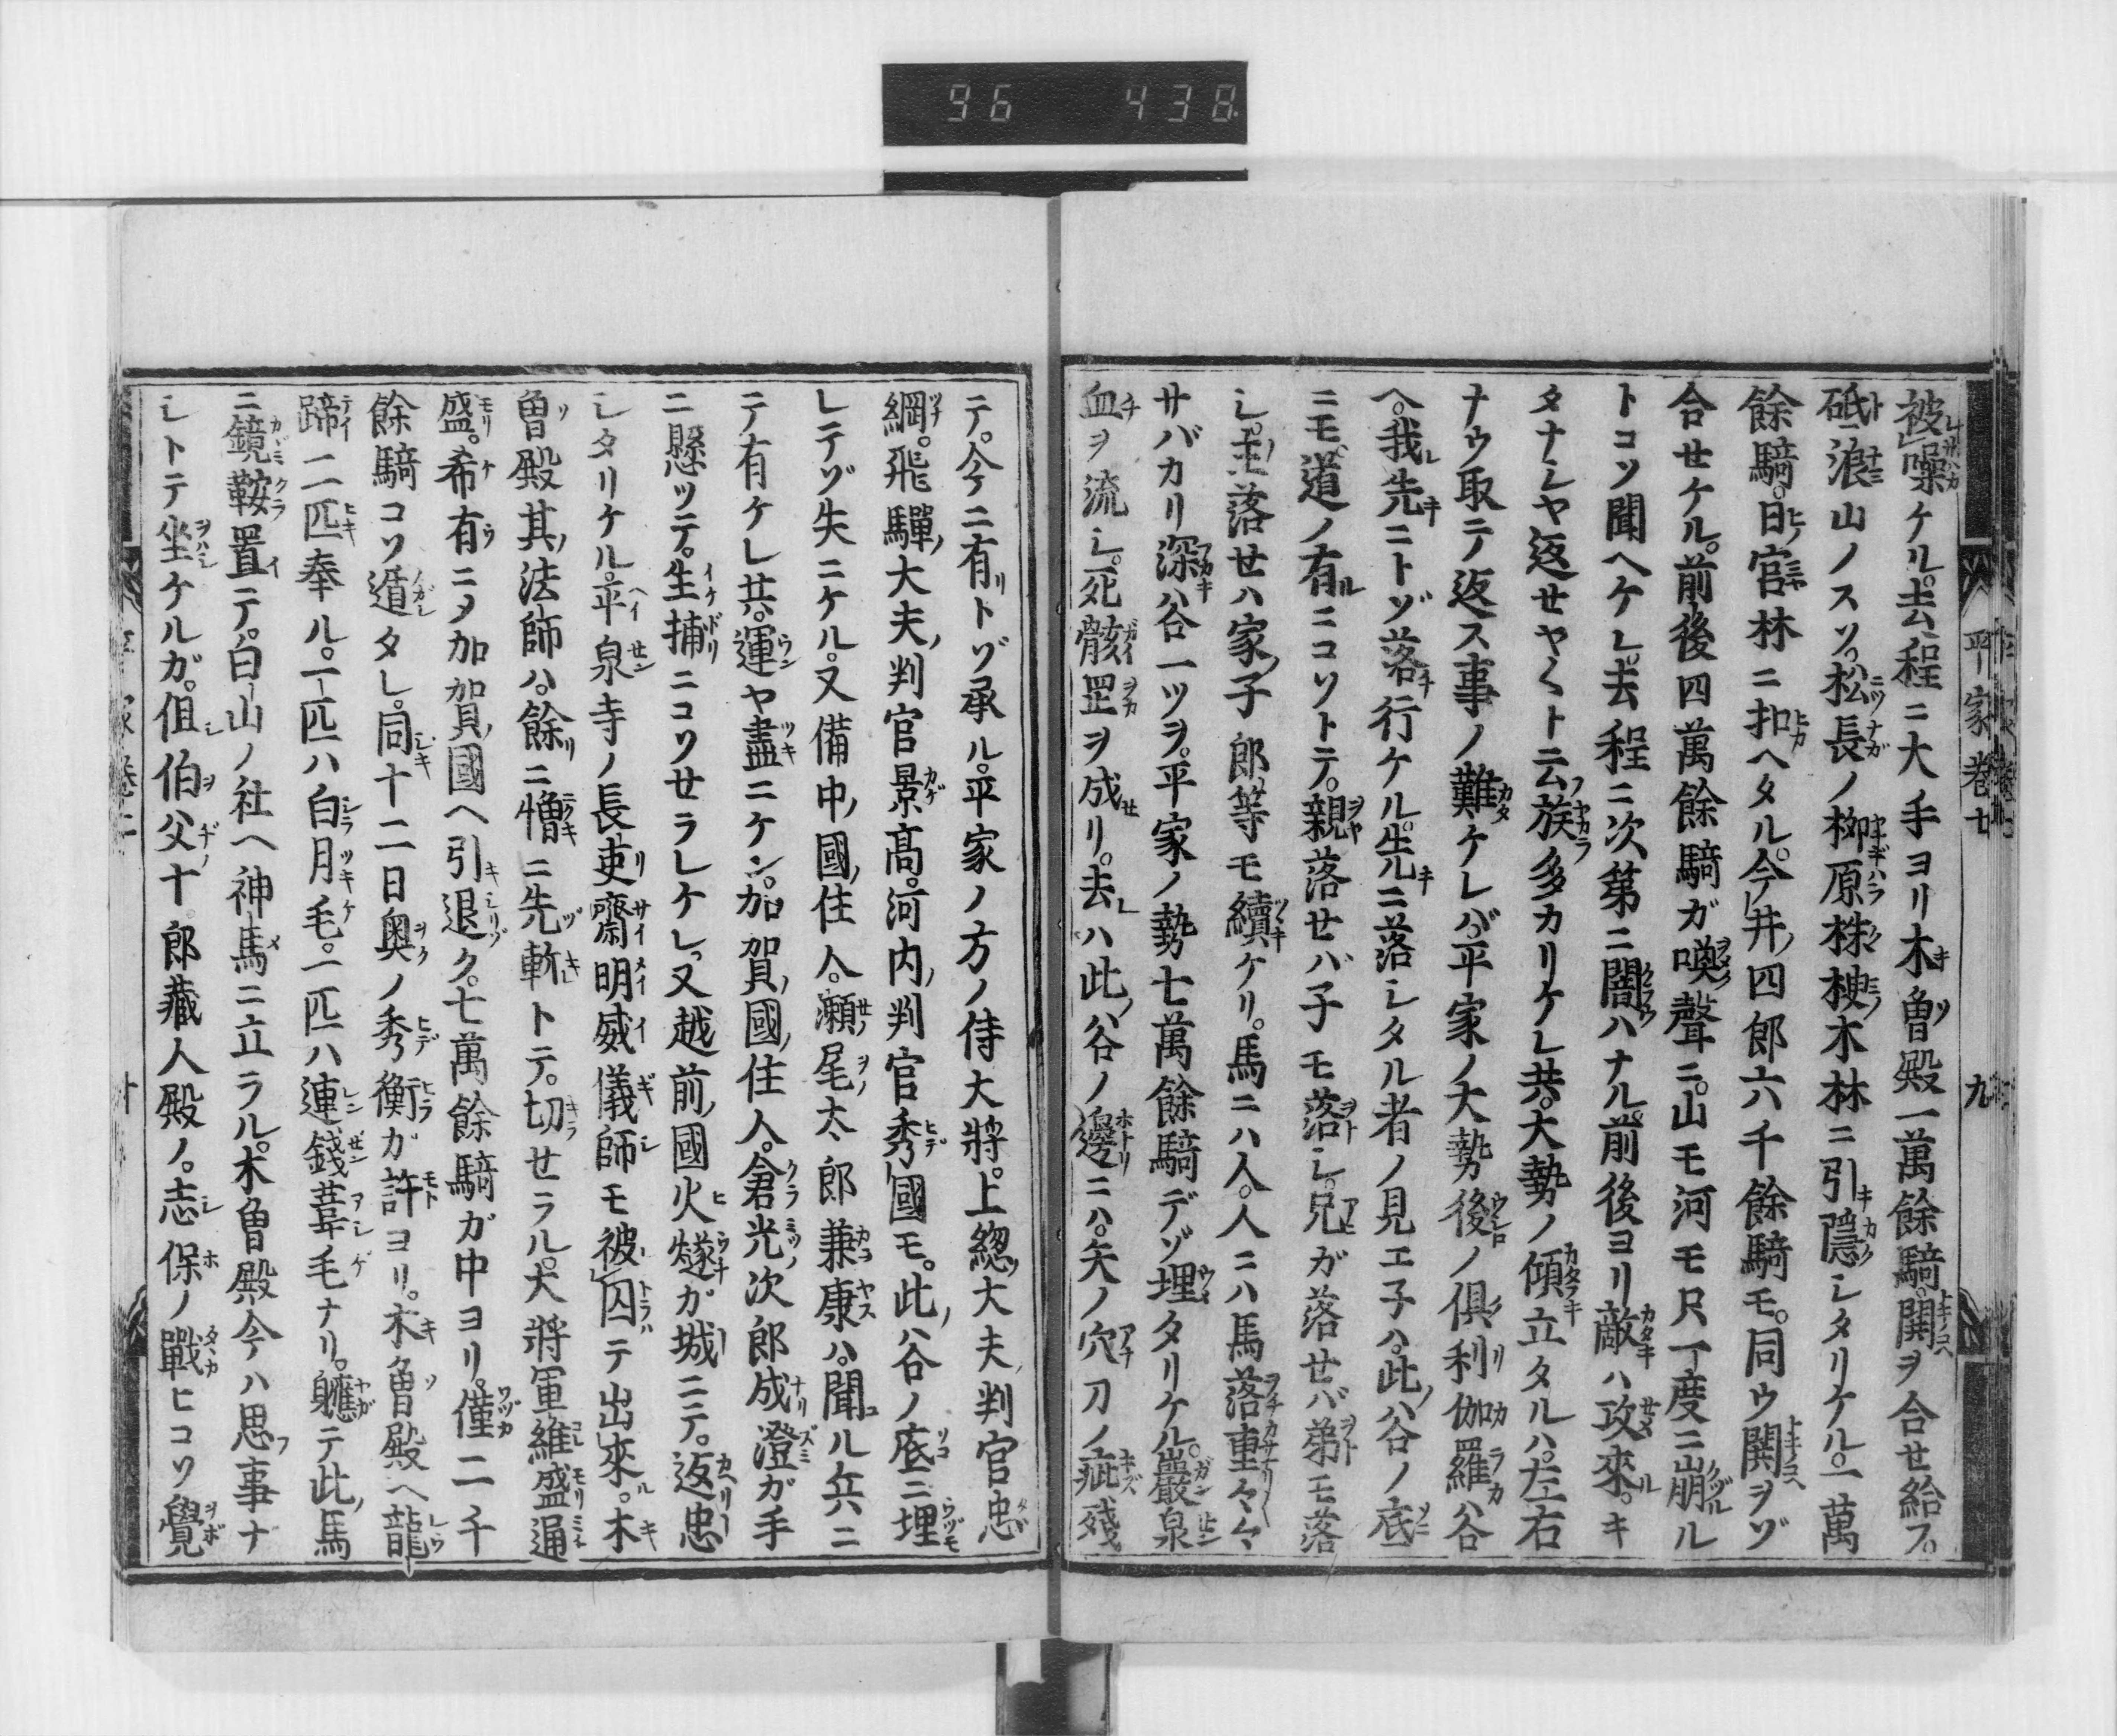 96 438
被噪ケル。去程ニ大手ヨリ木曽殿一萬餘騎。鬨ヲ合せ給フ。
砥浪山ノスソ。松長ノ栁原株梗木林ニ引隠シタリケル。一萬
餘騎。日宮林ニ扣ヘタル。今井四郎六千餘騎モ。同ウ鬨ヲゾ
合せケル。前後四萬餘騎ガ喚聲ニ。山モ河モ只一度ニ崩ル
トコソ聞ヘケレ。去程ニ次第ニ闇ハナル。前後ヨリ敵ハ攻來。キ
タナシヤ返せヤ〱ト云族多カリケレ共。大勢ノ傾立タルハ。左右
ナウ取テ返ス事ノ難ケレバ。平家ノ大勢後ノ倶利伽羅谷
ヘ。我先ニトゾ落行ケル。先ニ落シタル者ノ見エ子ハ。此谷ノ底
ニモ道ノ有ニコソトテ。親落せバ子モ落シ。兄ガ落せバ弟モ落
シ。主落せハ家子郎等モ續ケリ。馬ニハ人。人ニハ馬落重々々
サバカリ深谷一ツヲ。平家ノ勢七萬餘騎デゾ埋タリケル。巖泉
血ヲ流シ。死骸罡ヲ成リ。去ハ此谷ノ邊ニハ。矢ノ穴刀ノ疵殘
平家巻七 九
テ。今ニ有トゾ承ル。平家ノ方ノ侍大將。上総大夫判官忠
綱。飛驒大夫判官景髙。河内判官秀國モ。此谷ノ底ニ埋
レテゾ失ニケル。又備中國住人。瀬尾太郎兼康ハ。聞ル兵ニ
テ有ケレ共。運ヤ盡ニケン。加賀國住人。倉光次郎成澄ガ手
ニ懸ツテ。生捕ニコソせラレケレ。又越前國火燧ガ城ニテ。返忠
シタリケル。平泉寺ノ長吏齋明威儀師モ被囚テ出來。木
曽殿其法師ハ。餘ニ憎ニ先斬トテ。切せラル。大將軍維盛通
盛。希有ニメ加賀國ヘ引退ク。七萬餘騎ガ中ヨリ。僅二千
餘騎コソ遁タレ。同十二日奥ノ秀衡ガ許ヨリ。木曽殿ヘ龍
蹄二匹奉ル。一匹ハ白月毛。一匹ハ連錢葦毛ナリ。軈テ此馬
ニ鏡鞍置テ。白山ノ社ヘ神馬ニ立ラル。木曽殿今ハ思事ナ
シトテ坐ケルガ。但伯父十郎藏人殿ノ。志保ノ戰ヒコソ覺
十